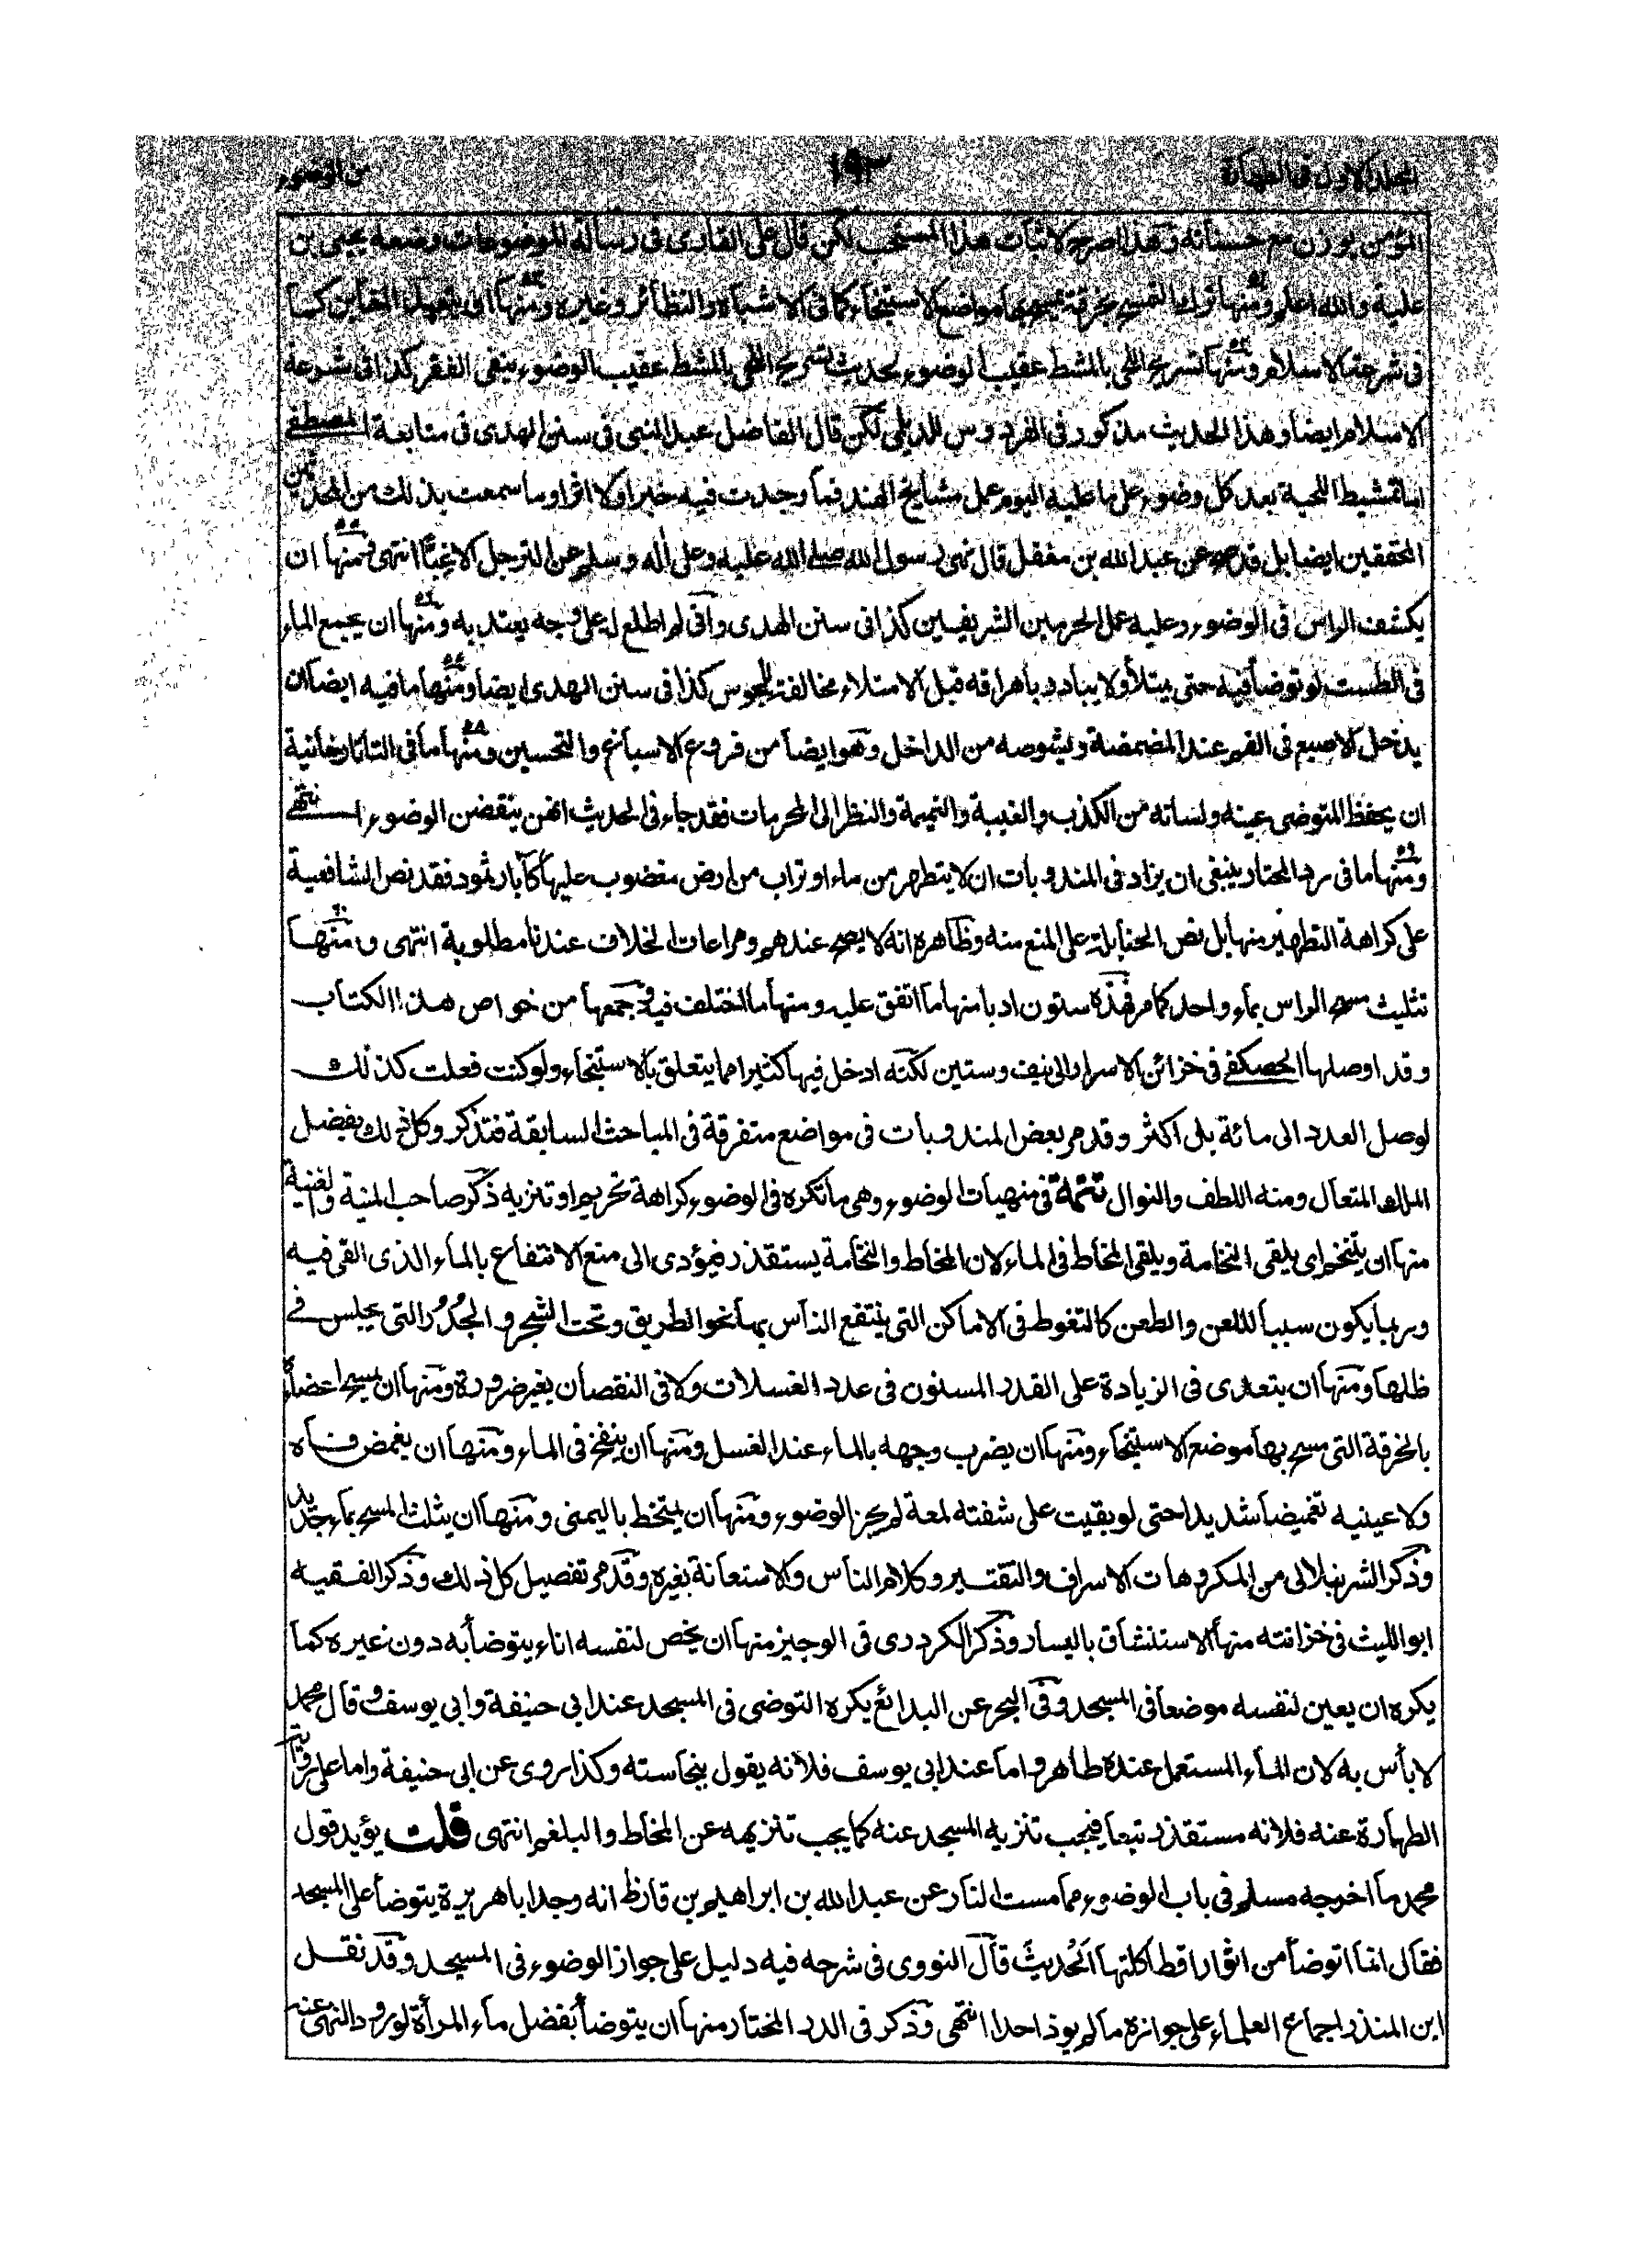 المجلد الاول فى الطهارة ١٩٣ من الوضوء
المؤمن يوزن مع حسناته وهذا صريح لاثبات هذا المستحب لكن قال على القارى فى رسالة الموضوعات وضعه يحيى بن
علية والله اعلم ومنها ترك التمسح بخرقة يمسح بها مواضع الاستنجاء كما فى الاشباه والنظائر وغيره ومنها
فى شرعة الاسلام ومنها تسريح اللحى بالمشط عقيب الوضوء لحديث تسريح اللحى بالمشط عقيب الوضوء ينفى الفقر كذا فى شرعة
الاسلام ايضا وهذا الحديث مذكور فى الفردوس للديلمى لكن قال الفاضل عبد النبى فى سنن الهدى فى متابعة المصطفے
اما تمشيط اللحية بعد كل وضوء على ما عليه اليوم عمل مشايخ الهند فما وجدت فيه خبرا ولا اثرا وما سمعت بذلك من المحدثين
المحققين ايضا بل قد صح عن عبد الله بن مغفل قال نهى رسول الله صلے الله عليه وعلى أله وسلم عن الترجل الا غبًّا انتهى ومنها ان
يكشف الراس فى الوضوء وعليه عمل الحرمين الشريفين كذا فى سنن الهدى وانى لم اطلع له على وجه يعتد به ومنها ان يجمع الماء
فى الطست لو توضأ فيه حتى يمتلأ ولا يبادر باهراقه قبل الامتلاء مخالفة للمجوس كذا فى سنن الهدى ايضا ومنها ما فيه ايضا ان
يدخل الاصبع فى الفم عند المضمضة ويشوصه من الداخل وهو ايضا من فروع الاسباغ والتحسين ومنها ما فى التاتارخانية
ان يحفظ المتوضى عينه ولسانه من الكذب والغيبة والنميمة والنظر الى المحرمات فقد جاء فى الحديث انهن ينقضن الوضوء انتهے
ومنها ما فى رد المحتار ينبغى ان يزاد فى المندوبات ان لا يتطهر من ماء او تراب من ارض مغضوب عليها كآبار ثمود فقد نص الشافعية
على كراهة التطهير منها بل نص الحنابلة على المنع منه وظاهره انه لا يصح عندهم ومراعات الخلاف عندنا مطلوبة انتهى ومنها
تثليث مسح الراس بماء واحد كما مر فهذه ستون ادبا منها ما اتفق عليه ومنها ما اختلف فيه وجمعها من خواص هذا الكتاب
وقد اوصلها الحصكفے فى خزائن الاسرار الى نيف وستين لكنه ادخل فيها كثيرا مما يتعلق بالاستنجاء ولو كنت فعلت كذلك
لوصل العدد الى مائة بل اكثر وقد مر بعض المندوبات فى مواضع متفرقة فى المباحث السابقة فتذكر وكل ذلك بفضل
الملك المتعال ومنه اللطف والنوال تتمة فى منهيات الوضوء وهى ما تكره فى الوضوء كراهة تحريم او تنزيه ذكر صاحب المنية والغنية
منها ان يتنخم اى يلقى النخامة ويلقى المخاط فى الماء لان المخاط والنخامة يستقذر فيؤدى الى منع الانتفاع بالماء الذى القى فيه
وربما يكون سببا للعن والطعن كالتغوط فى الاماكن التى ينتفع الناس بها نحو الطريق وتحت الشجر والجُدُر التى يجلس فے
ظلها ومنها ان يتعدى فى الزيادة على القدر المسنون فى عدد الغسلات ولا فى النقصان بغير ضرورة ومنها ان يمسح اعضاءه
بالخرقة التى مسح بها موضع الاستنجاء ومنها ان يضرب وجهه بالماء عند الغسل ومنها ان ينفخ فى الماء ومنها ان يغمض فاه
ولا عينيه تغميضا شديدا حتى لو بقيت على شفته لمعة لم يجز الوضوء ومنها ان يمتخط باليمنى ومنها ان يثلث المسح بماء جديد
وذكر الشرنبلالى من المكروهات الاسراف والتقتير وكلام الناس والاستعانة بغيره وقد مر تفصيل كل ذلك وذكر الفقيه
ابو الليث فى خزانته منها الاستنشاق باليسار وذكر الكردرى فى الوجيز منها ان يخص لنفسه اناء يتوضأ به دون غيره كما
يكره ان يعين لنفسه موضعا فى المسجد وفى البحر عن البدائع يكره التوضى فى المسجد عند ابى حنيفة وابى يوسف وقال محمد
لا بأس به لان الماء المستعمل عنده طاهر واما عند ابى يوسف فلانه يقول بنجاسته وكذا روى عن ابى حنيفة واما على رواية
الطهارة عنه فلانه مستقذر تبعا فيجب تنزيه المسجد عنه كما يجب تنزيهه عن المخاط والبلغم انتهى قلت يؤيد قول
محمد ما اخرجه مسلم فى باب الوضوء مما مست النار عن عبد الله بن ابراهيم بن قارظ انه وجد ابا هريرة يتوضأ على المسجد
فقال انما اتوضأ من اثوار اقط اكلتها الحديث قال النووى فى شرحه فيه دليل على جواز الوضوء فى المسجد وقد نقل
ابن المنذر اجماع العلماء على جوازه ما لم يوذ احدا انتهى وذكر فى الدر المختار منها ان يتوضأ بفضل ماء المرأة لورود النهى عنه